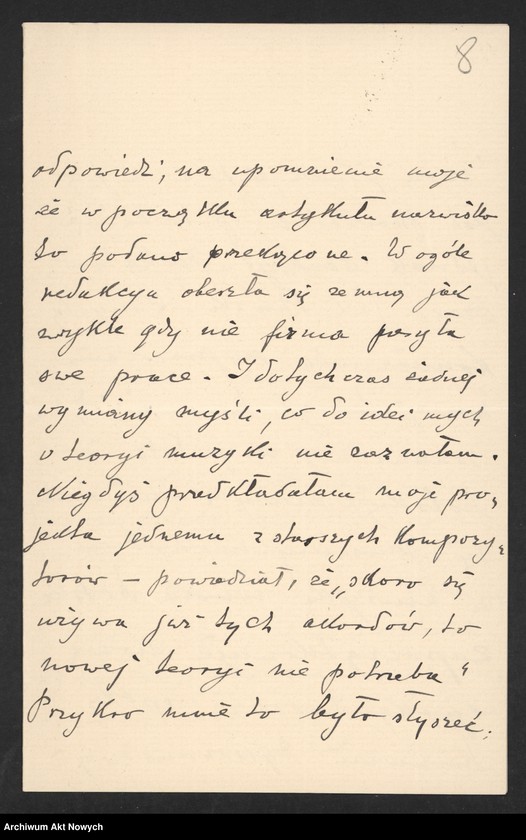 8
odpowiedzi, na upomnienie moje
że w początku artykułu nazwisko
to podano przekręcone. W ogóle
redakcya obeszła się ze mną jak
zwykle gdy nie firma posyła
swe prace. I dotychczas żadnej
wymiany myśli, co do idei mych
o teoryi muzyki nie zaznałam.
Niegdyś przedkładałam moje pro,
jekta jednemu z starszych kompozy,
torów — powiedział, że „skoro się
używa już tych akordów, to
nowej teoryi nie potrzeba"
Przykro mnie to było słyszeć;
Archiwum Akt Nowych